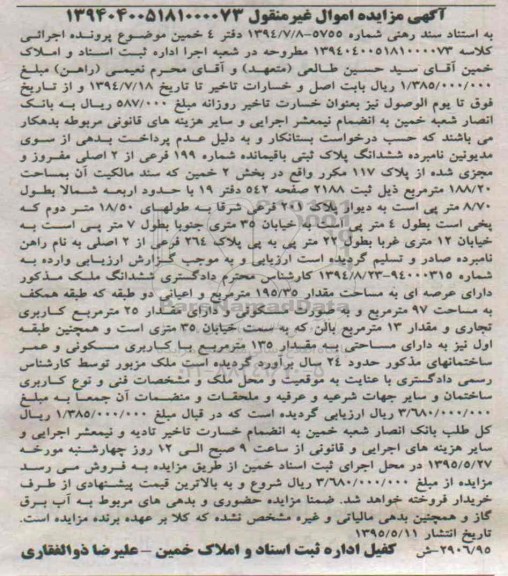 آگهی مزایده اموال غیرمنقول ۱۳۹۴۰۴۰۰۵۱۸۱۰۰۰۰۷۳
به استناد سند رهنی شماره ۵۷۵۵-۱۳۹۴/۷/۸ دفتر ۴ خمین موضوع پرونده اجرائی
کلاسه ۱۳۹۴۰۴۰۰۵۱۸۱۰۰۰۰۷۳ مطروحه در شعبه اجرا اداره ثبت اسناد و املاک
خمین آقای سید حسین طالعی (متعهد) و آقای محرم نعیمی (راهن) مبلغ
۱/۳۸۵/۰۰۰/۰۰۰ ریال بابت اصل و خسارات تاخیر تا تاریخ ۱۳۹۴/۷/۱۸ و از تاریخ
فوق تا یوم الوصول نیز بعنوان خسارت تاخیر روزانه مبلغ ۵۸۷/۰۰۰ ریال به بانک
انصار شعبه خمین به انضمام نیمعشر اجرایی و سایر هزینه های قانونی مربوطه بدهکار
می باشند که حسب درخواست بستانکار و به دلیل عدم پرداخت بدهی از سوی
مدیونین نامبرده ششدانگ پلاک ثبتی باقیمانده شماره ۱۹۹ فرعی از ۲ اصلی مفروز و
مجزی شده از پلاک ۱۱۷ مکرر واقع در بخش ۲ خمین که سند مالکیت آن بمساحت
۱۸۸/۲۰ مترمربع ذیل ثبت ۲۱۸۸ صفحه ۵۴۲ دفتر ۱۹ با حدود اربعه شمالا بطول
۸/۷۰ متر پی است به دیوار پلاک ۲۰۰ فرعی شرقا به طولهای ۱۸/۵۰ متر دوم که
پخی است بطول ۴ متر پی است به خیابان ۳۵ متری جنوبا بطول ۷ متر پی است به
خیابان ۱۲ متری غربا بطول ۲۲ متر پی به پی پلاک ۲۶۴ فرعی از ۲ اصلی به نام راهن
نامبرده صادر و تسلیم گردیده است ارزیابی و به موجب گزارش ارزیابی وارده به
شماره ۹۴۰۰۰۳۱۵-۱۳۹۴/۸/۲۳ کارشناس محترم دادگستری ششدانگ ملک مذکور
دارای عرصه ای به مساحت مقدار ۱۹۵/۳۵ مترمربع و اعیانی دو طبقه که طبقه همکف
به مساحت ۹۷ مترمربع و به صورت مسکونی و دارای مقدار ۲۵ مترمربع کاربری
تجاری و مقدار ۱۳ مترمربع بالن که به سمت خیابان ۳۵ متری است و همچنین طبقه
اول نیز به دارای مساحتی به مقدار ۱۳۵ مترمربع با کاربری مسکونی و عمر
ساختمانهای مذکور حدود ۲۴ سال برآورد گردیده است ملک مزبور توسط کارشناس
رسمی دادگستری با عنایت به موقعیت و محل ملک و مشخصات فنی و نوع کاربری
ساختمان و سایر جهات شرعیه و عرفیه و ملحقات و منضمات آن جمعا به مبلغ
۳/۶۸۰/۰۰۰/۰۰۰ ریال ارزیابی گردیده است که در قبال مبلغ ۱/۳۸۵/۰۰۰/۰۰۰ ریال
کل طلب بانک انصار شعبه خمین به انضمام خسارت تاخیر تادیه و نیمعشر اجرایی و
سایر هزینه های اجرایی و قانونی از ساعت ۹ صبح الی ۱۲ روز چهارشنبه مورخه
۱۳۹۵/۵/۲۷ در محل اجرای ثبت اسناد خمین از طریق مزایده به فروش می رسد
مزایده از مبلغ ۳/۶۸۰/۰۰۰/۰۰۰ ریال شروع و به بالاترین قیمت پیشنهادی از طرف
خریدار فروخته خواهد شد. ضمنا مزایده حضوری و بدهی های مربوط به آب برق
گاز و همچنین بدهی مالیاتی و غیره مشخص نشده که کلا بر عهده برنده مزایده است.
تاریخ انتشار ۱۳۹۵/۵/۱۱
۲۹۰۶/۹۵-ش کفیل اداره ثبت اسناد و املاک خمین - علیرضا ذوالفقاری